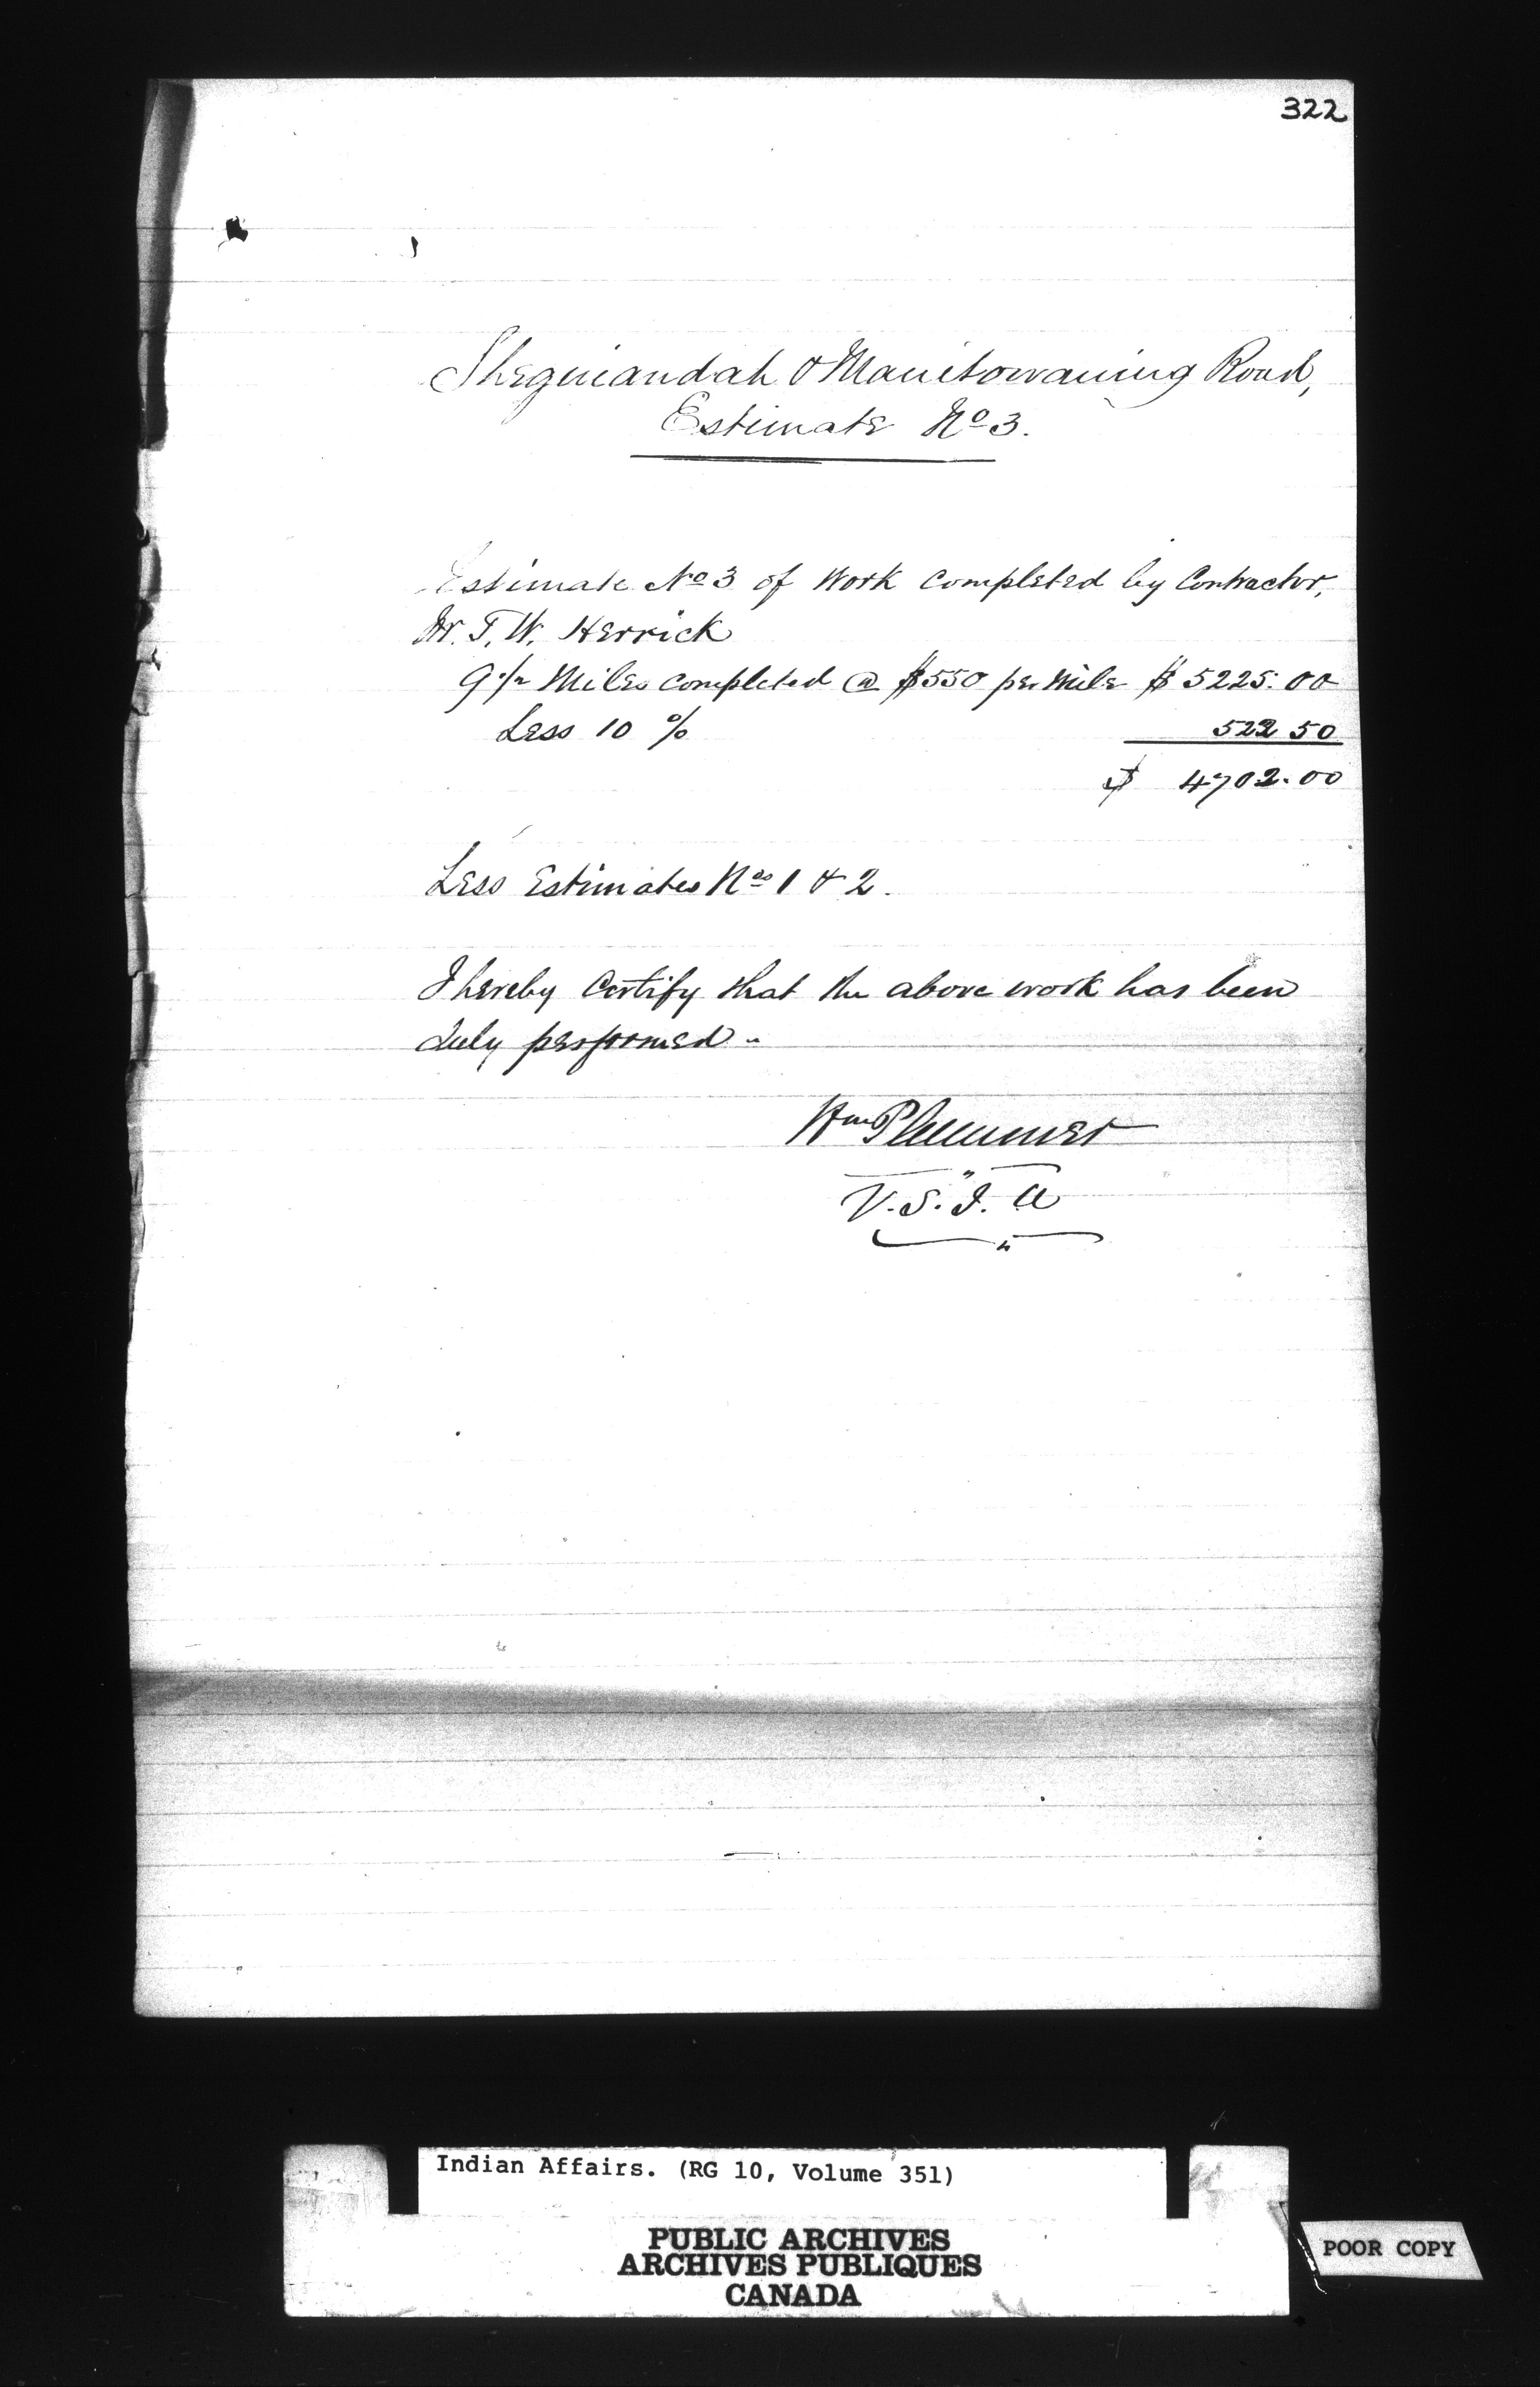 322
Sheguiandah & Manitowaning Road,
Estimate No 3.
Estimate No 3 of Work Completed by Contractor,
Mr. T. W. Herrick
9 1/2 Miles completed @ $550 per Mile $ 5225.00
Less 10 % 522 50
$ 4702.00
Less Estimates Nos 1 & 2.
I hereby Certify that the above work has been
duly performed -
Wm Plummer
V. S. I. A
Indian Affairs. (RG 10, Volume 351)
PUBLIC ARCHIVES
ARCHIVES PUBLIQUES
CANADA
POOR COPY